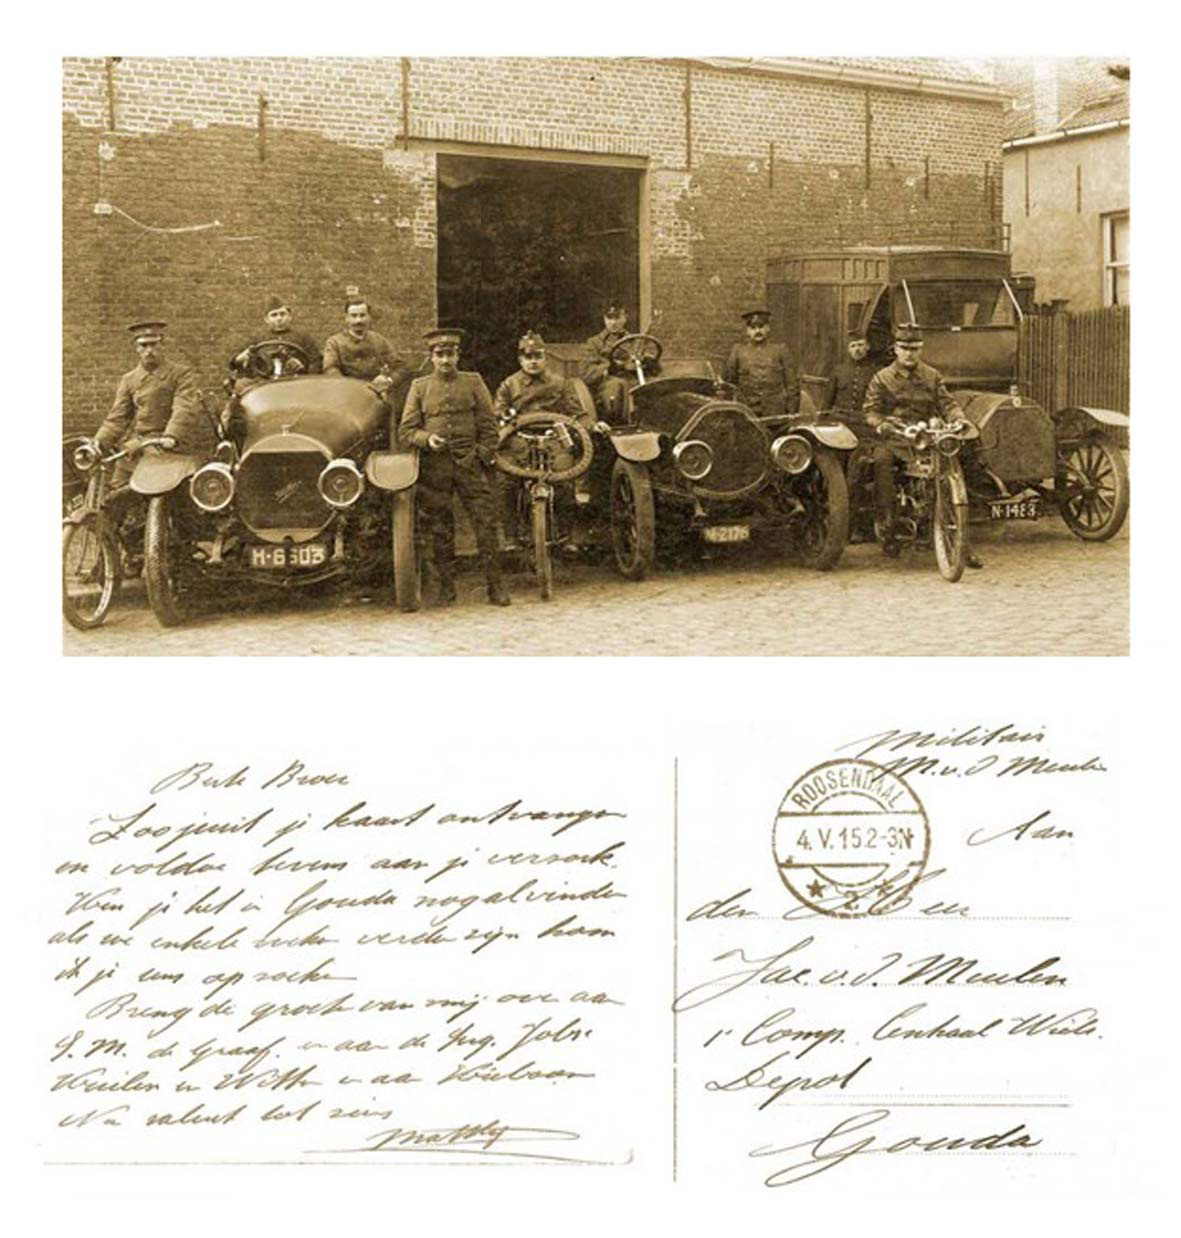 H-6603
M-2176
N-1483
Beste Broer
Zoo juist je kaart ontvangen
en voldoe tevens aan je versoek.
Wen je het in Gouda nogal vinden
als we enkele weken verder zijn kom
ik je eens opzoeken
Breng de groeten van mij over aan
S. M. de Graaf. en aan de
en Witte en aan
Nu saluut tot ziens
Militair
M. v. d Meulen
ROOSENDAAL
4.V.15.2-3N
2
Aan
den Heer
Jac. v. d. Meulen
1e Comp. Centraal Wiel.
Depot
Gouda